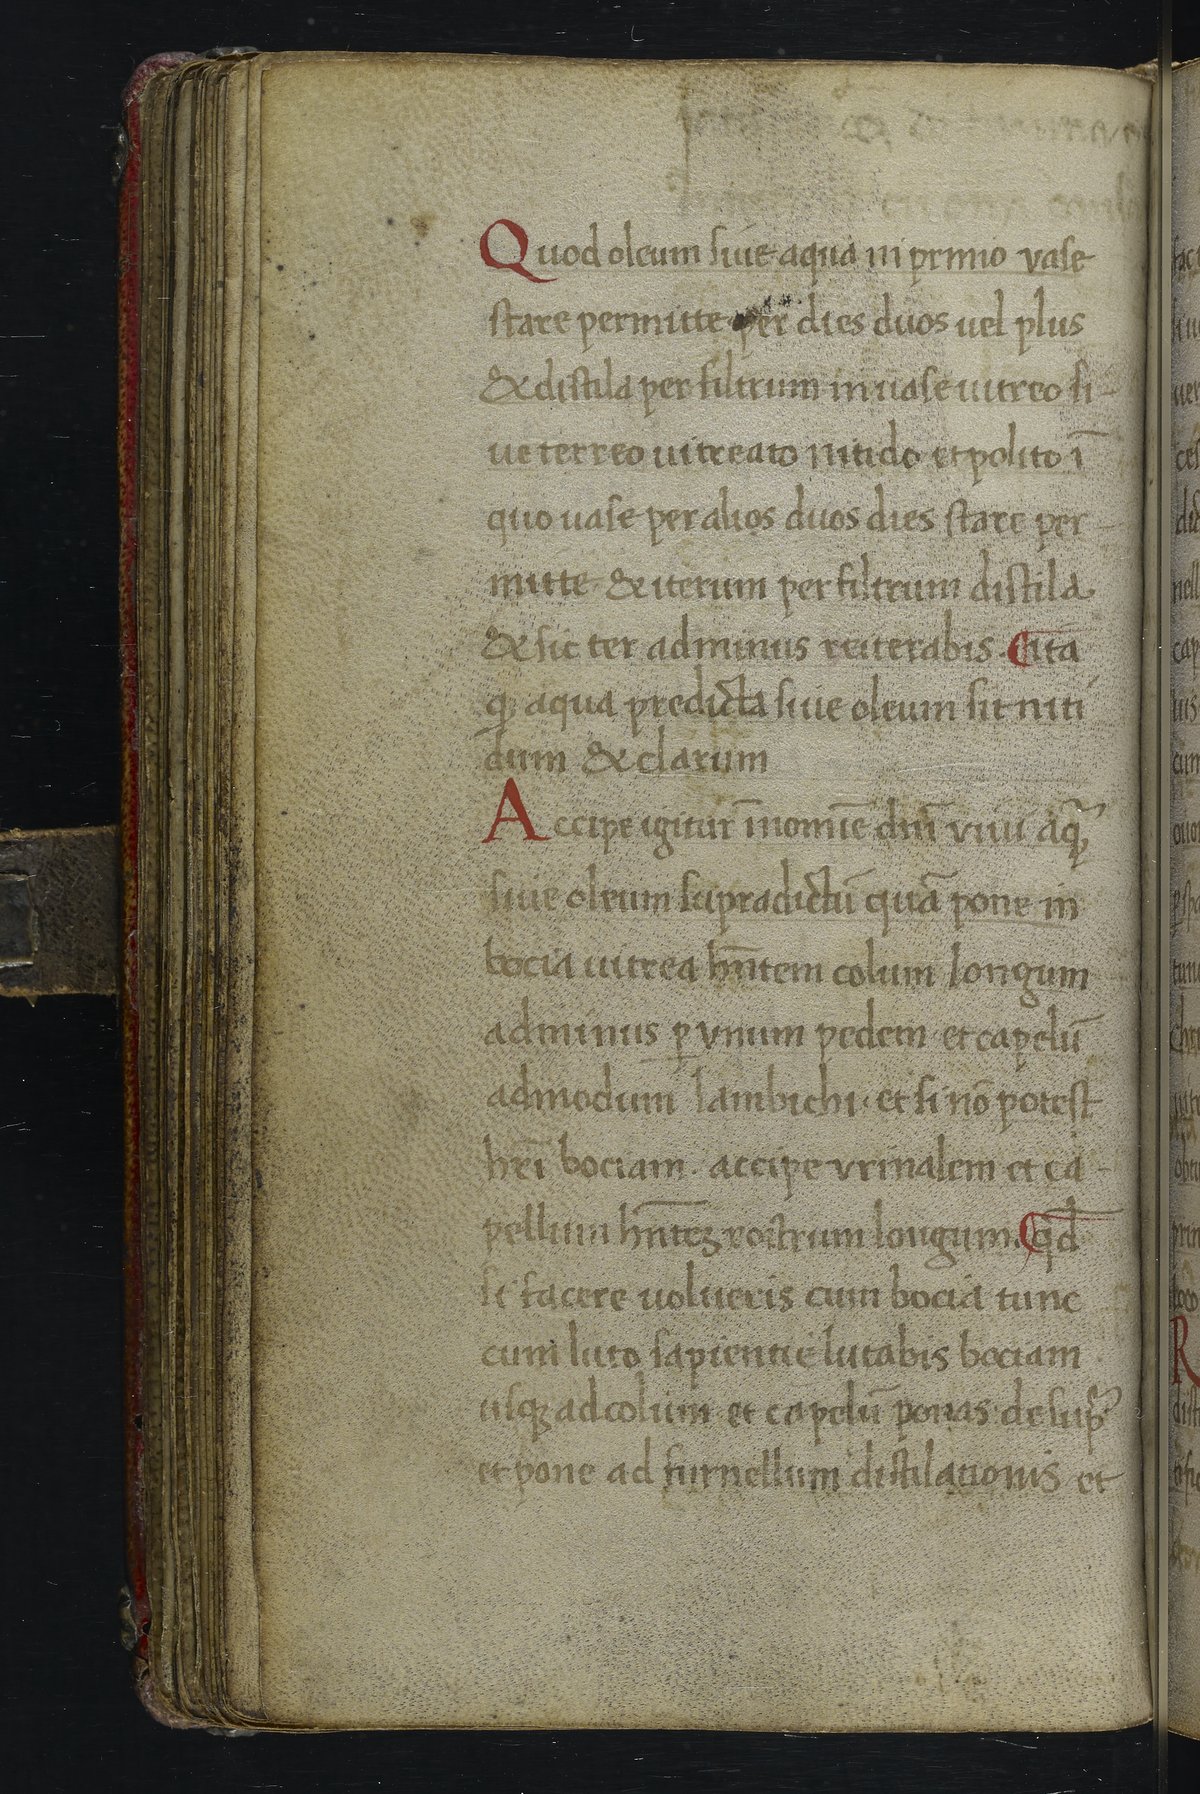 Quod oleum siue aqua in primo vase
stare permitte per dies duos uel plus
& distila per filtrum in uase uitreo si-
ue terreo uitreato nitido et polito ī
quo uase per alios duos dies stare per-
mitte & iterum per filtrum distila
& sic ter ad minus reiterabis. ita
qꝫ aqua predicta siue oleum sit niti
dum & clarum
Accipe igitur īnomīe dnī viui aqꝫ
siue oleum supradictū quā pone in
bocia uitrea hn̄tem colum longum
ad minus ꝑ vnum pedem et capelū
admodum lambichi. et si nō potest
hr̄i bociam. accipe vrinalem et ca-
pellum hn̄teʒ rostrum longum. qd̄
si facere uolueris cum bocia tunc
cum luto sapientie lutabis bociam
usqꝫ ad colum et capelū ponas desup̄
et pone ad furnellum distilationis et